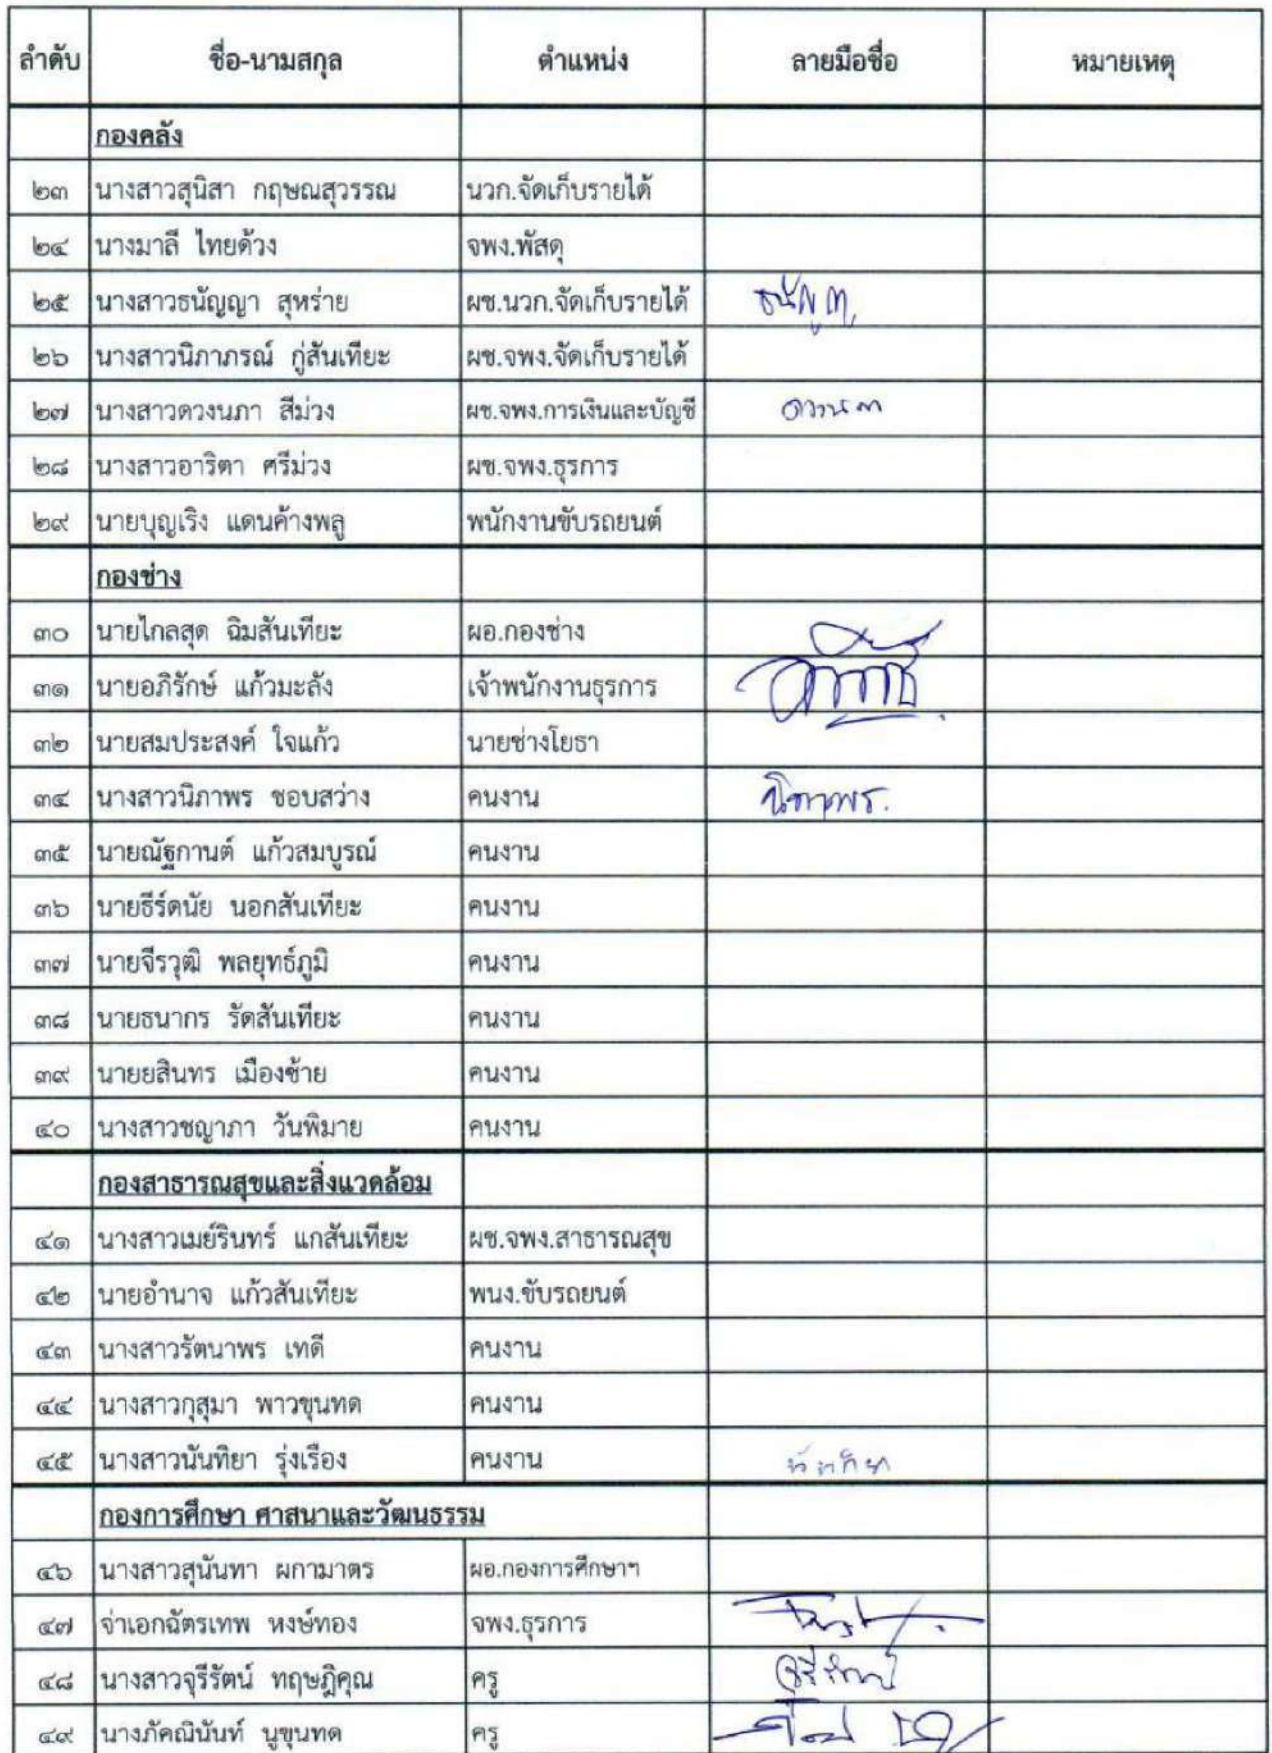 ลำดับ ชื่อ-นามสกุล ตำแหน่ง ลายมือชื่อ หมายเหตุ
กองคลัง
๒๓ นางสาวสุนิสา กฤษณสุวรรณ นวก.จัดเก็บรายได้
๒๔ นางมาลี ไทยด้วง จพง.พัสดุ
๒๕ นางสาวธนัญญา สุหร่าย ผช.นวก.จัดเก็บรายได้
๒๖ นางสาวนิภาภรณ์ กู่สันเทียะ ผช.จพง.จัดเก็บรายได้
๒๗ นางสาวดวงนภา สีม่วง ผช.จพง.การเงินและบัญชี
๒๘ นางสาวอาริตา ศรีม่วง ผช.จพง.ธุรการ
๒๙ นายบุญเริง แดนค้างพลู พนักงานขับรถยนต์
กองช่าง
๓๐ นายไกลสุด ฉิมสันเทียะ ผอ.กองช่าง
๓๑ นายอภิรักษ์ แก้วมะลัง เจ้าพนักงานธุรการ
๓๒ นายสมประสงค์ ใจแก้ว นายช่างโยธา
๓๔ นางสาวนิภาพร ชอบสว่าง คนงาน นิภาพร.
๓๕ นายณัฐกานต์ แก้วสมบูรณ์ คนงาน
๓๖ นายธีร์ดนัย นอกสันเทียะ คนงาน
๓๗ นายจีรวุฒิ พลยุทธ์ภูมิ คนงาน
๓๘ นายธนากร รัดสันเทียะ คนงาน
๓๙ นายยสินทร เมืองซ้าย คนงาน
๔๐ นางสาวชญาภา วันพิมาย คนงาน
กองสาธารณสุขและสิ่งแวดล้อม
๔๑ นางสาวเมย์รินทร์ แกสันเทียะ ผช.จพง.สาธารณสุข
๔๒ นายอำนาจ แก้วสันเทียะ พนง.ขับรถยนต์
๔๓ นางสาวรัตนาพร เทดี คนงาน
๔๔ นางสาวกุสุมา พาวขุนทด คนงาน
๔๕ นางสาวนันทิยา รุ่งเรือง คนงาน นันทิยา
กองการศึกษา ศาสนาและวัฒนธรรม
๔๖ นางสาวสุนันทา ผกามาตร ผอ.กองการศึกษาฯ
๔๗ จ่าเอกฉัตรเทพ หงษ์ทอง จพง.ธุรการ
๔๘ นางสาวจุรีรัตน์ ทฤษฎิคุณ ครู จุรีรัตน์
๔๙ นางภัคณินันท์ นูขุนทด ครู